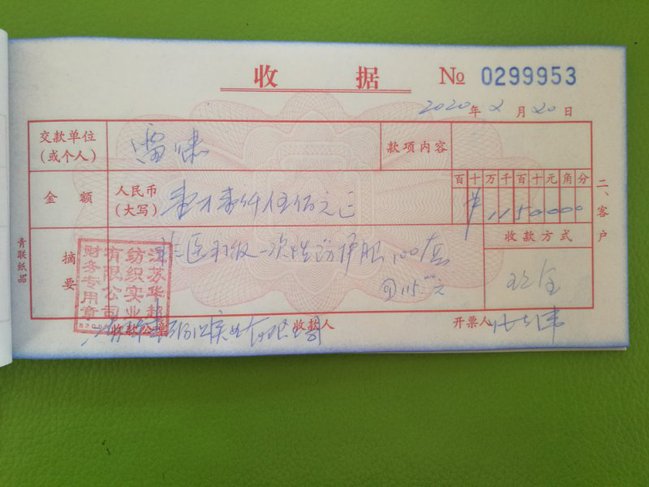 收 据 № 0299953
2020年2月20日
交款单位
(或个人)
雷啸
款项内容
金 额
人民币
(大写)
壹万壹仟伍佰元正
百十万千百十元角分
¥1150000
摘要
非医用级一次性防护服100套
@115.00元
收款方式
现金
江苏华
纺织实业
有限公司
财务专用章
收款公章
收款人
开票人
二、客户
青联纸品